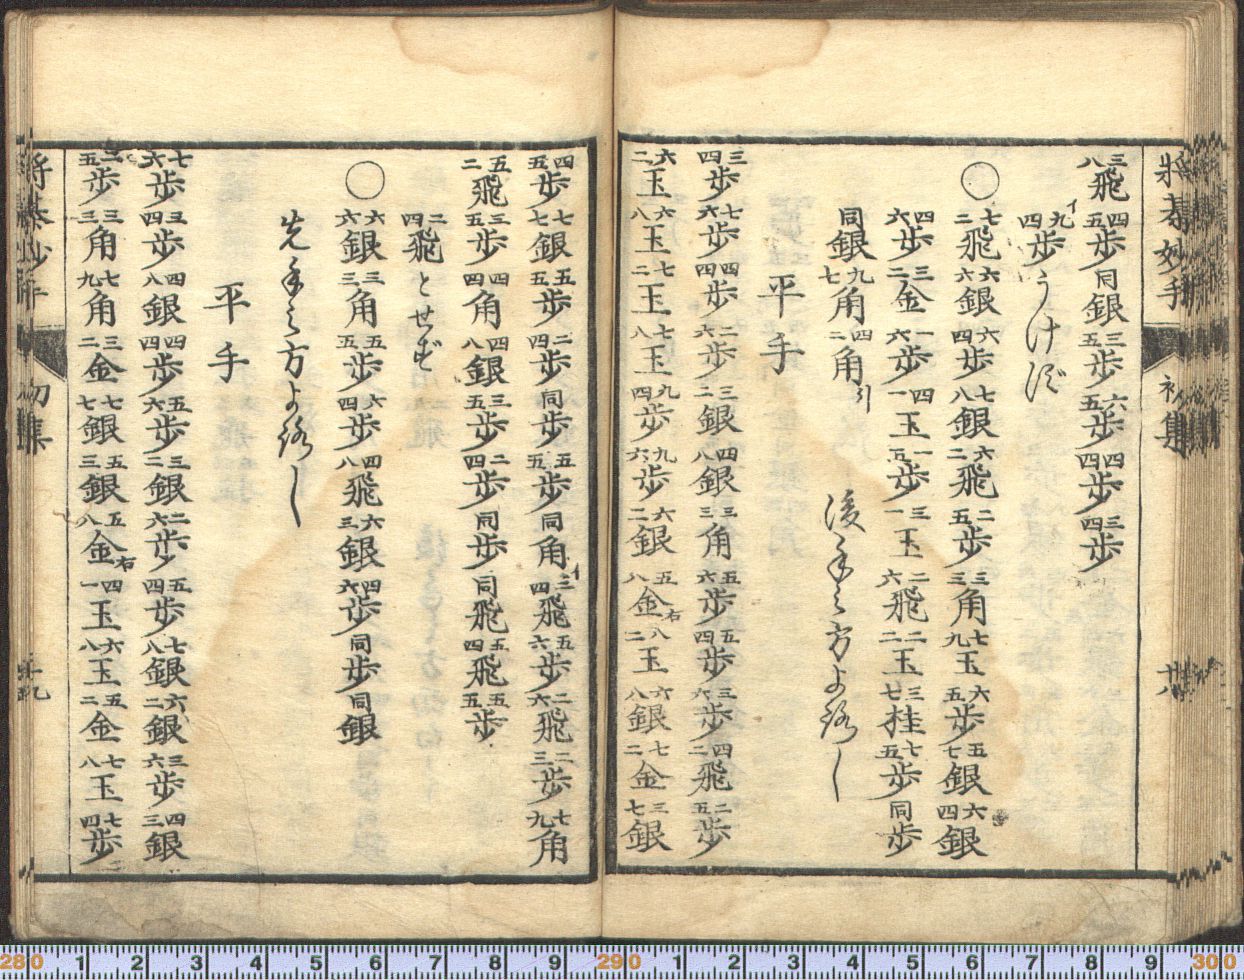 將棊妙手 初集 廿八
三八飛 四五歩 同銀 三五歩 六五歩 四四歩 三四歩
イ九四歩うけず
○ 七二飛 六六銀 六四歩 七八銀 六二飛 二五歩 三三角 七九玉 六五歩 五七銀 六四銀
四六歩 三二金 一六歩 四一玉 一五歩 三一玉 二六飛 二二玉 三七桂 七五歩 同歩
同銀 九七角 四二角引 後手之方よろし
平手
三四歩 七六歩 四四歩 二六歩 三二銀 四八銀 三三角 五六歩 五四歩 三六歩 四二飛 二五歩
六二玉 六八玉 七二玉 七八玉 九四歩 九六歩 六二銀 五八金右 八二玉 六八銀 七二金 三七銀
四五歩 七七銀 五五歩 二四歩 同歩 五五歩 同角 イ三四飛 五六歩 二六飛 二三歩 七九角
五二飛 三五歩 四四角 四八銀 三五歩 二四歩 同歩 同飛 五四飛 五五歩
二四飛とせず
○ 六六銀 三三角 五五歩 六四歩 四八飛 六三銀 四六歩 同歩 同銀
先手之方よろし
平手
七六歩 三四歩 四八銀 四四歩 五六歩 三二銀 二六歩 五四歩 七八銀 六二銀 三六歩 四三銀
二五歩 三三角 七九角 三二金 七七銀 五三銀 五八金右 四一玉 六八玉 五二金 七八玉 七四歩
280 1 2 3 4 5 6 7 8 9 290 1 2 3 4 5 6 7 8 9 300